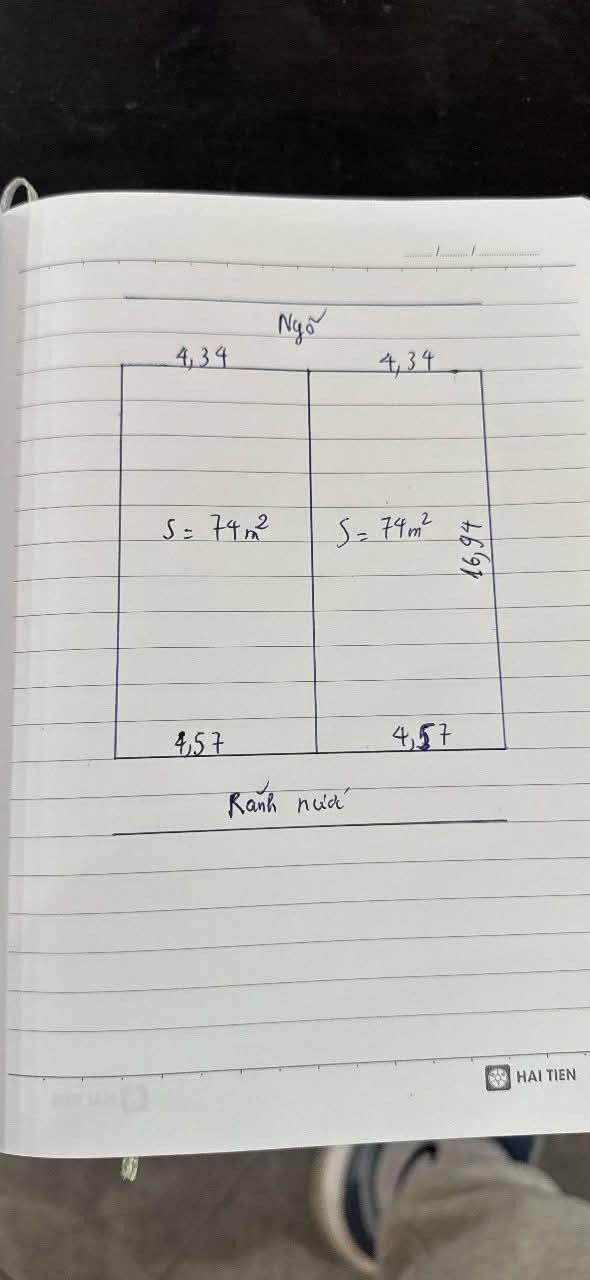 Ngõ
4,34 4,34
S = 74m² S = 74m²
16,94
4,57 4,57
Rãnh nước
HAI TIEN